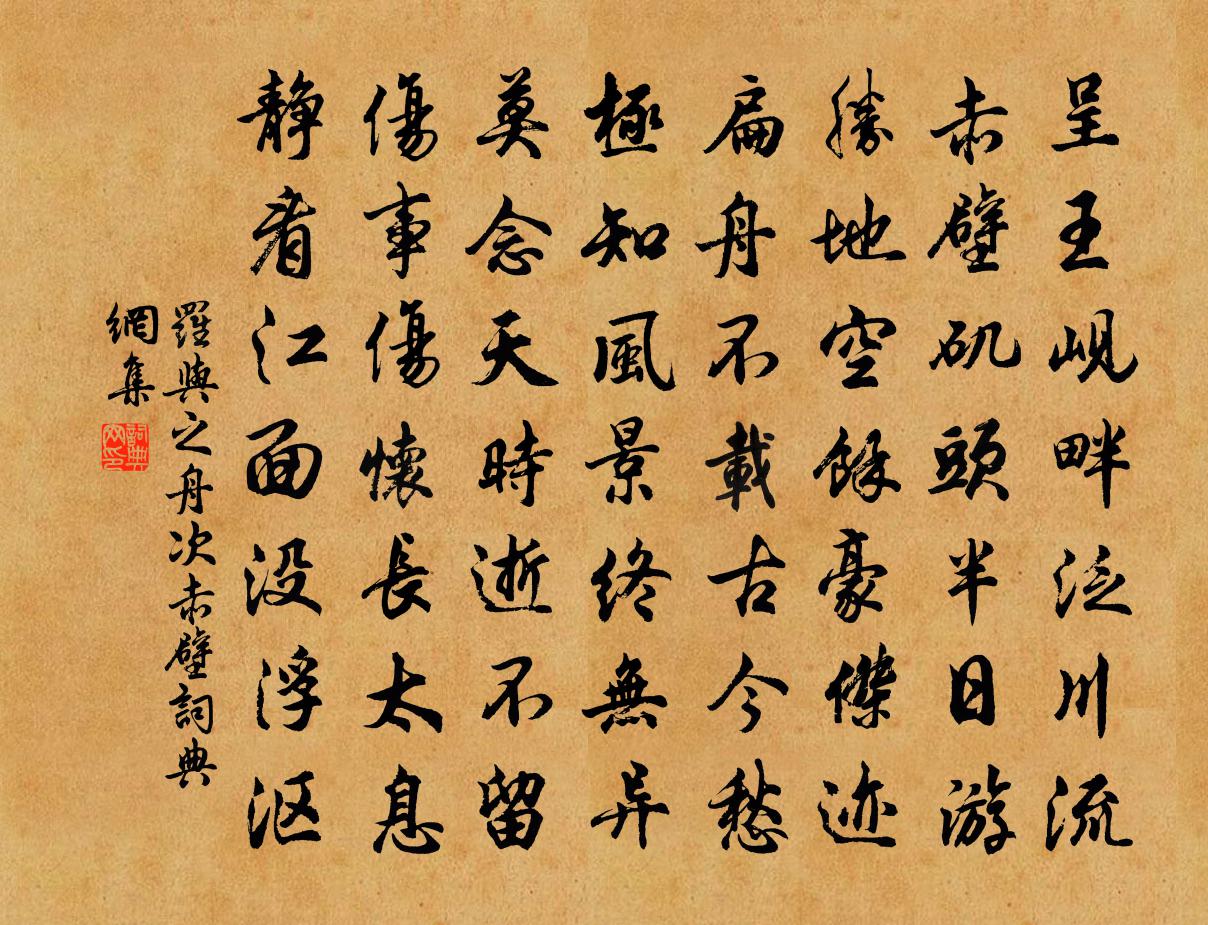 呈王峴畔泛川流
赤壁矶頭半日游
勝地空餘豪傑迹
扁舟不載古今愁
極知風景終無异
莫念天時逝不留
傷事傷懷長太息
静看江面没浮沤
羅與之舟次赤壁詞典
網集
詞典
网印